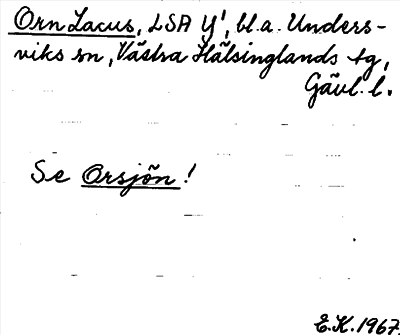 Orn Lacus, LSA Y¹, bl.a. Unders-
viks sn, Västra Hälsinglands tg,
Gävl. l.
Se Orsjön!
E.K. 1967.